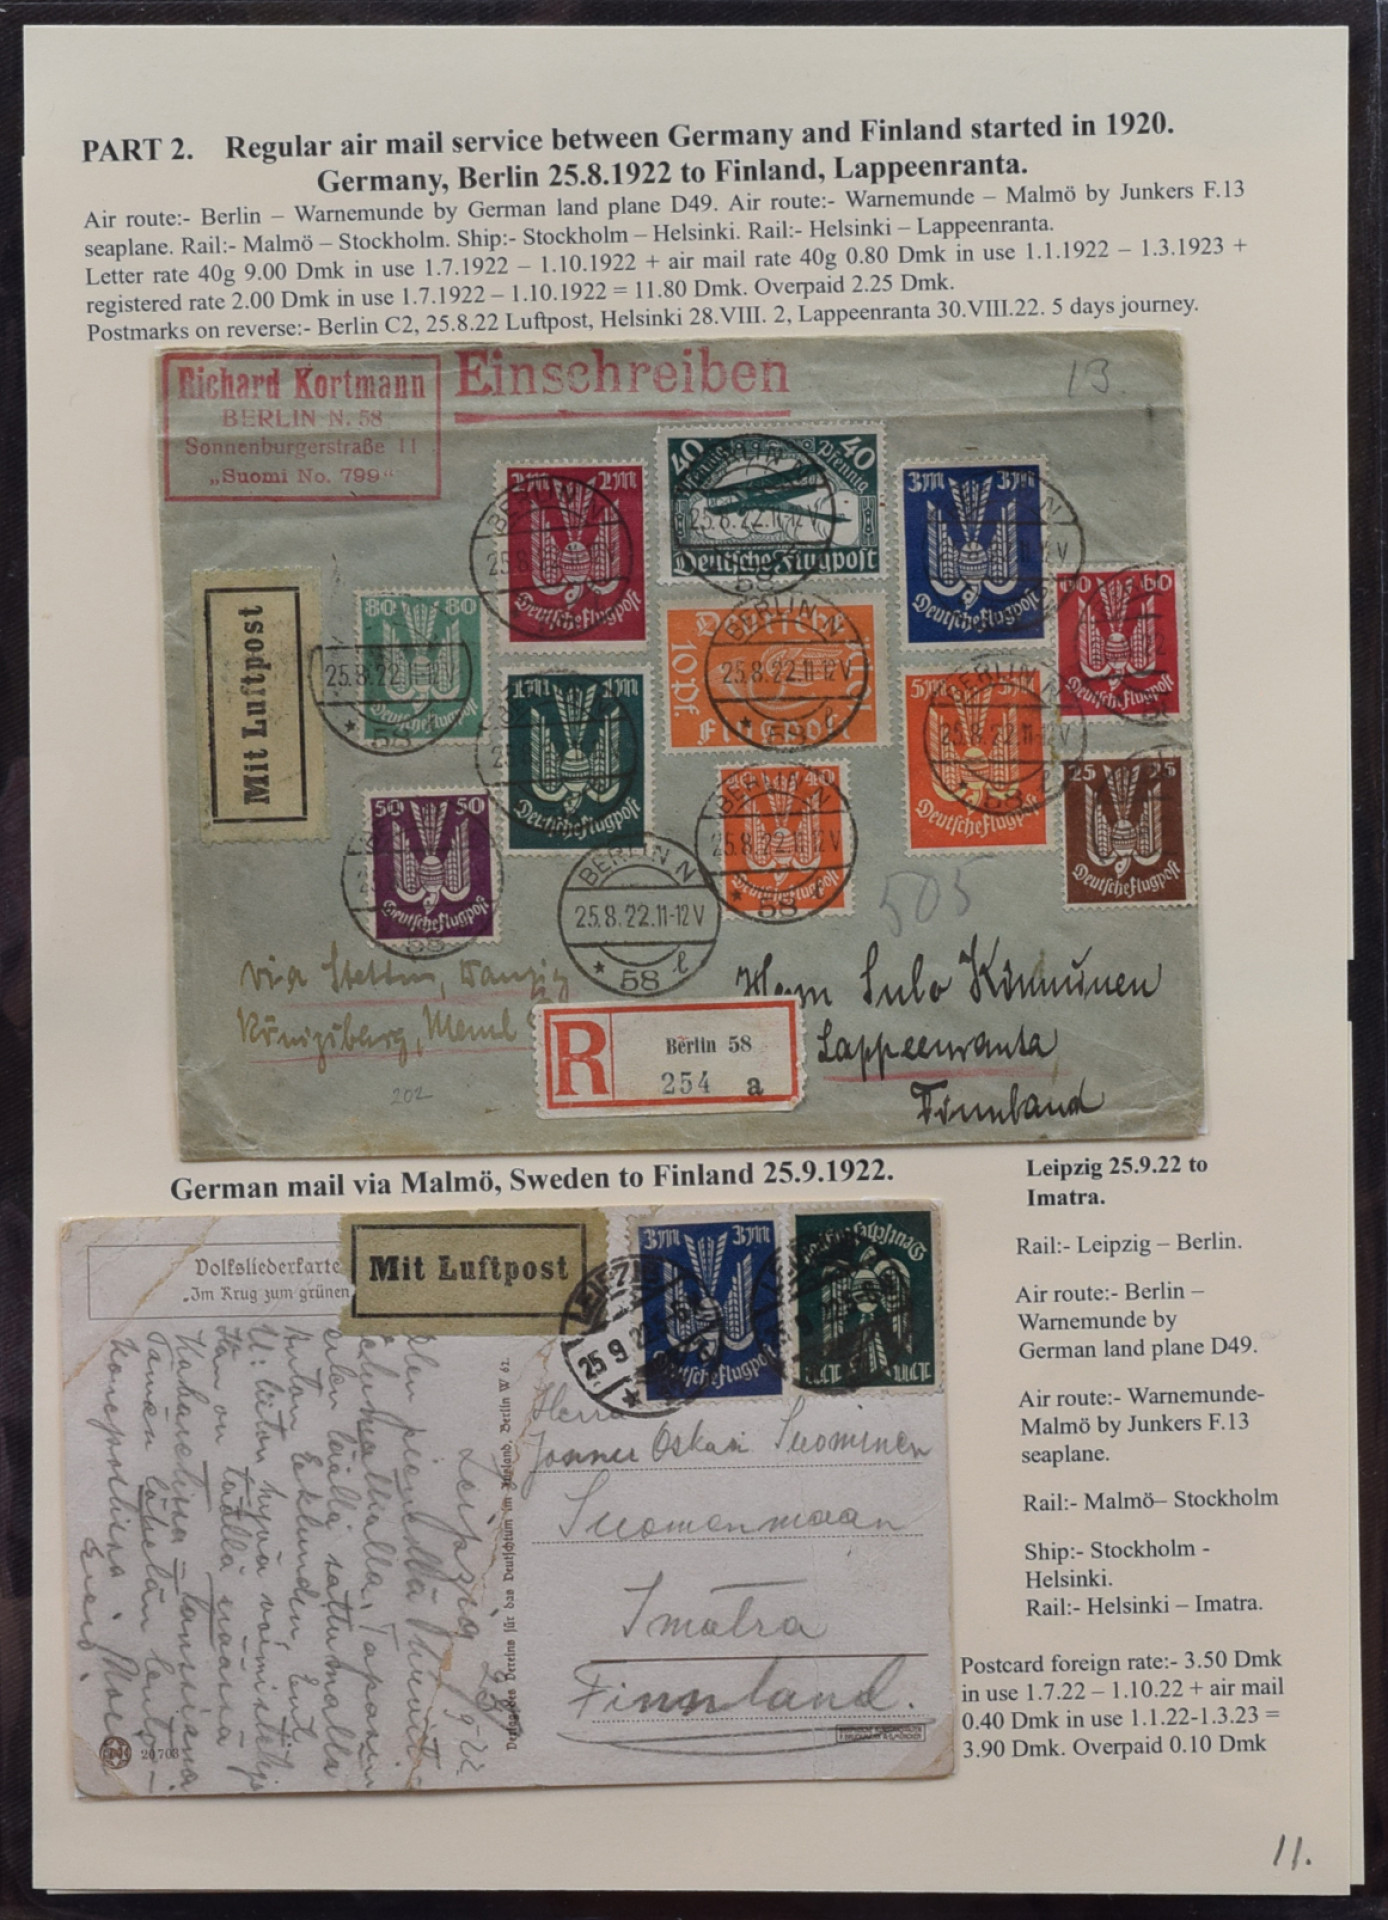 PART 2. Regular air mail service between Germany and Finland started in 1920.
Germany, Berlin 25.8.1922 to Finland, Lappeenranta.
Air route:- Berlin – Warnemunde by German land plane D49. Air route:- Warnemunde – Malmö by Junkers F.13
seaplane. Rail:- Malmö – Stockholm. Ship:- Stockholm – Helsinki. Rail:- Helsinki – Lappeenranta.
Letter rate 40g 9.00 Dmk in use 1.7.1922 – 1.10.1922 + air mail rate 40g 0.80 Dmk in use 1.1.1922 – 1.3.1923 +
registered rate 2.00 Dmk in use 1.7.1922 – 1.10.1922 = 11.80 Dmk. Overpaid 2.25 Dmk.
Postmarks on reverse:- Berlin C2, 25.8.22 Luftpost, Helsinki 28.VIII. 2, Lappeenranta 30.VIII.22. 5 days journey.
Richard Kortmann
BERLIN N. 58
Sonnenburgerstraße 11
„Suomi No. 799“
Einschreiben
13.
Mit Luftpost
2M 2M
Deutsche Flugpost
40 40
Pfennig
Deutsche Flugpost
3M 3M
Deutsche Flugpost
80 80
Deutsche Flugpost
1M 1M
Deutsche Flugpost
10 Pf.
Flugpost
5M
Deutsche Flugpost
60 60
Deutsche Flugpost
50 50
Deutsche Flugpost
40
Deutsche Flugpost
25 25
Deutsche Flugpost
BERLIN N
25.8.22.11-12V
* 58 l
503
via Stettin, Danzig
Königsberg, Memel
202
R Berlin 58
254 a
Herrn Sulo Kömmünen
Lappeenranta
Finnland
German mail via Malmö, Sweden to Finland 25.9.1922.
Leipzig 25.9.22 to
Imatra.
Rail:- Leipzig – Berlin.
Air route:- Berlin –
Warnemunde by
German land plane D49.
Air route:- Warnemunde-
Malmö by Junkers F.13
seaplane.
Rail:- Malmö– Stockholm
Ship:- Stockholm -
Helsinki.
Rail:- Helsinki – Imatra.
Postcard foreign rate:- 3.50 Dmk
in use 1.7.22 – 1.10.22 + air mail
0.40 Dmk in use 1.1.22-1.3.23 =
3.90 Dmk. Overpaid 0.10 Dmk
Volksliederkarte
„Im Krug zum grünen
Mit Luftpost
3M 3M
Deutsche Flugpost
1M 1M
Deutsche Flugpost
LEIPZIG
25 9 2
Herra
Oskari Suominen
Suomenmaan
Imatra
Finnland.
Leipzig
Verlag des Vereins für das Deutschtum im Ausland, Berlin W 62.
20 703
11.